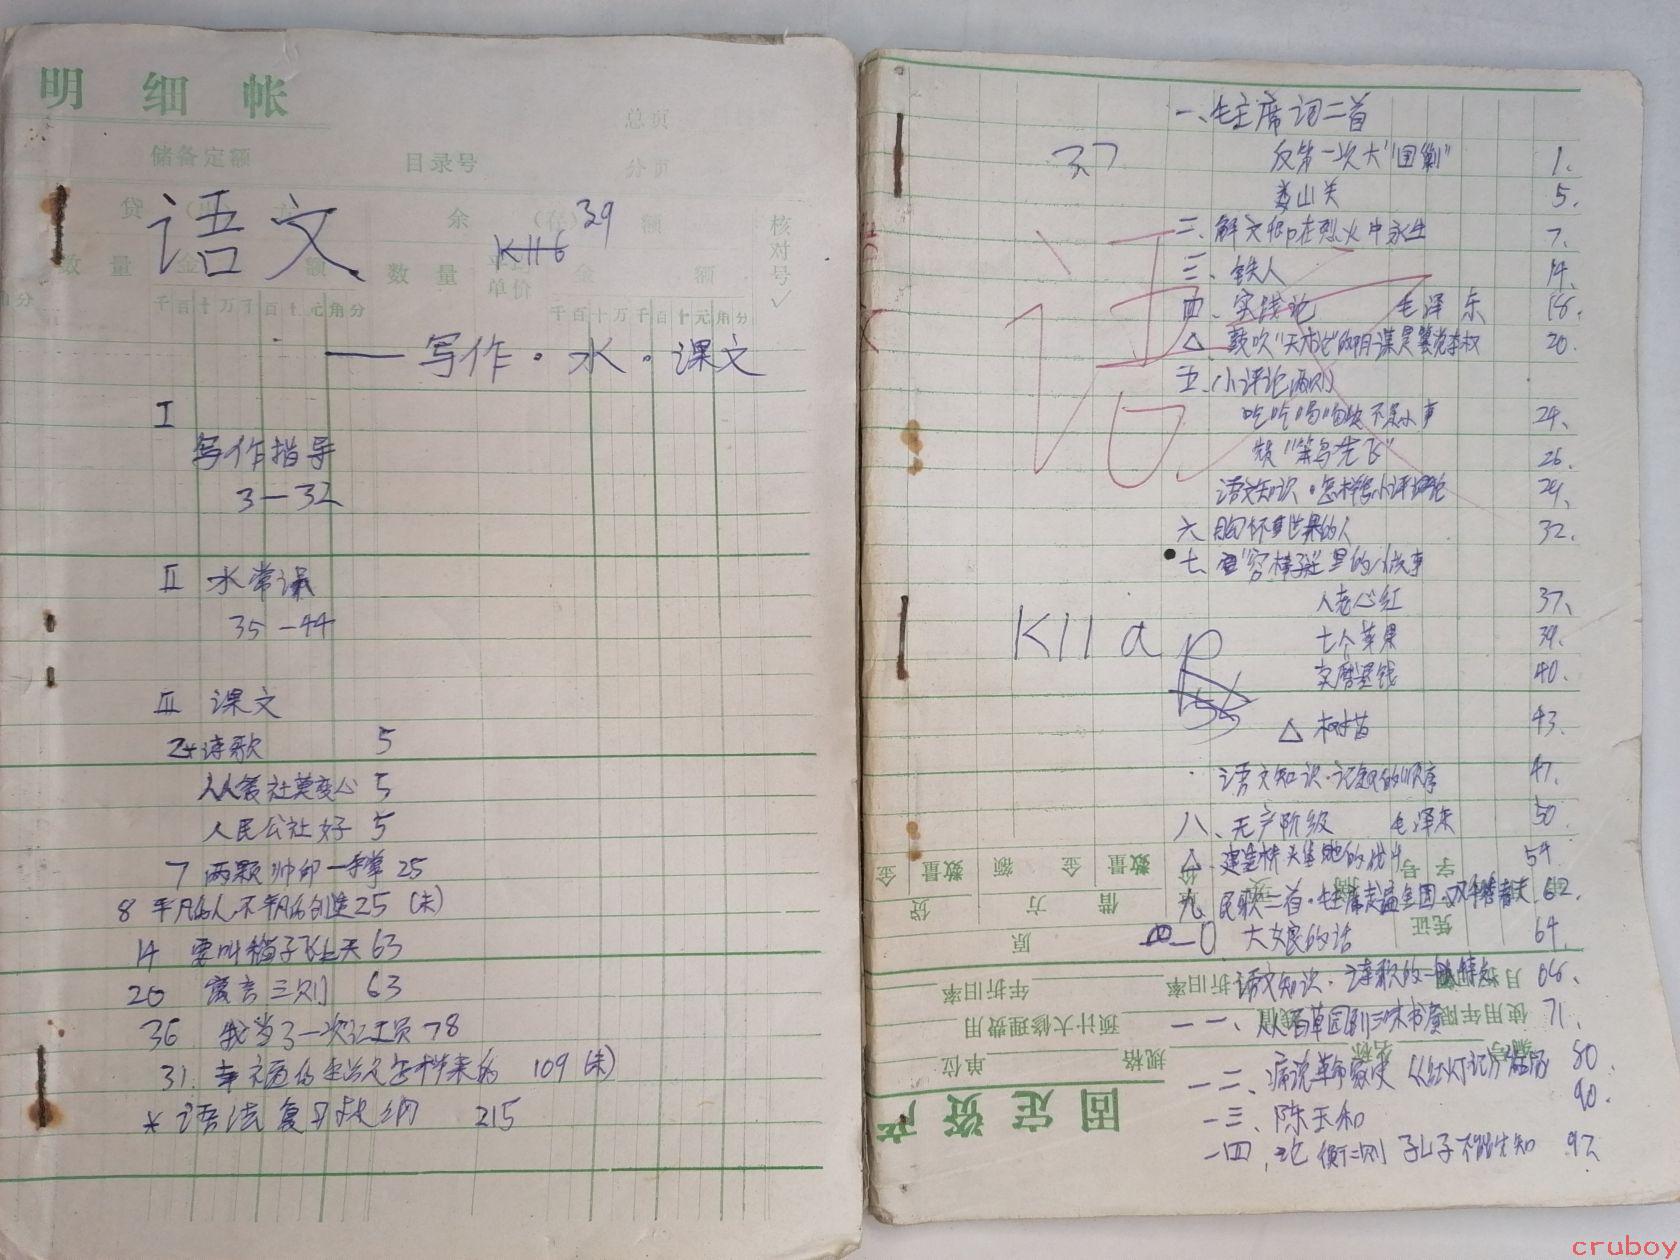 明细帐
总页
储备定额
目录号
分页
贷
余
额
核对号
语文
39
K116
数量
金
额
数量
单价
金
额
千百十万千百十元角分
千百十万千百十元角分
——写作·水·课文
I
写作指导
3—32
II 水常识
35—44
III 课文
诗歌 5
人人爱社莫变心 5
人民公社好 5
7 两颗帅印一手掌 25
8 平凡的人,不平凡的创造 25 (朱)
14 要叫稻子飞上天 63
20 寓言三则 63
36 我当了一次记工员 78
31. 幸福的生活是怎样来的 109 (朱)
* 语法复习 215
一、毛主席词二首
37
反第一次大“围剿” 1.
娄山关 5.
二、解文卿在烈火中永生 7.
三、铁人 14.
四、实践论 毛泽东 18.
△ 鼓吹“天才论”的阴谋是篡党夺权 20.
五、小评论两则
吃吃喝喝决不是小事 24.
“笨鸟先飞” 26.
语文知识·怎样写小评论 29.
六、胸怀世界的人 32.
七、“穷棒子社”里的小故事
人老心红 37.
七个苹果 39.
40.
K11a
△ 树苗 43.
语文知识·记叙的顺序 47.
八、无产阶级 毛泽东 50.
54
九、民歌二首·毛主席走遍全国 62.
一〇 大娘的话 64.
语文知识·诗歌的一般特点 68.
一一、从百草园到三味书屋 71.
一二、痛说革命家史 《红灯记》 80.
一三、陈玉和 90.
一四、论衡二则 孔子不能先知 92.
数量
金
额
数量
金
借
方
贷
凭证
原
年折旧率
月折旧率
预计大修理费用
使用年限
单位
规格
名称
编号
固定资产
cruboy